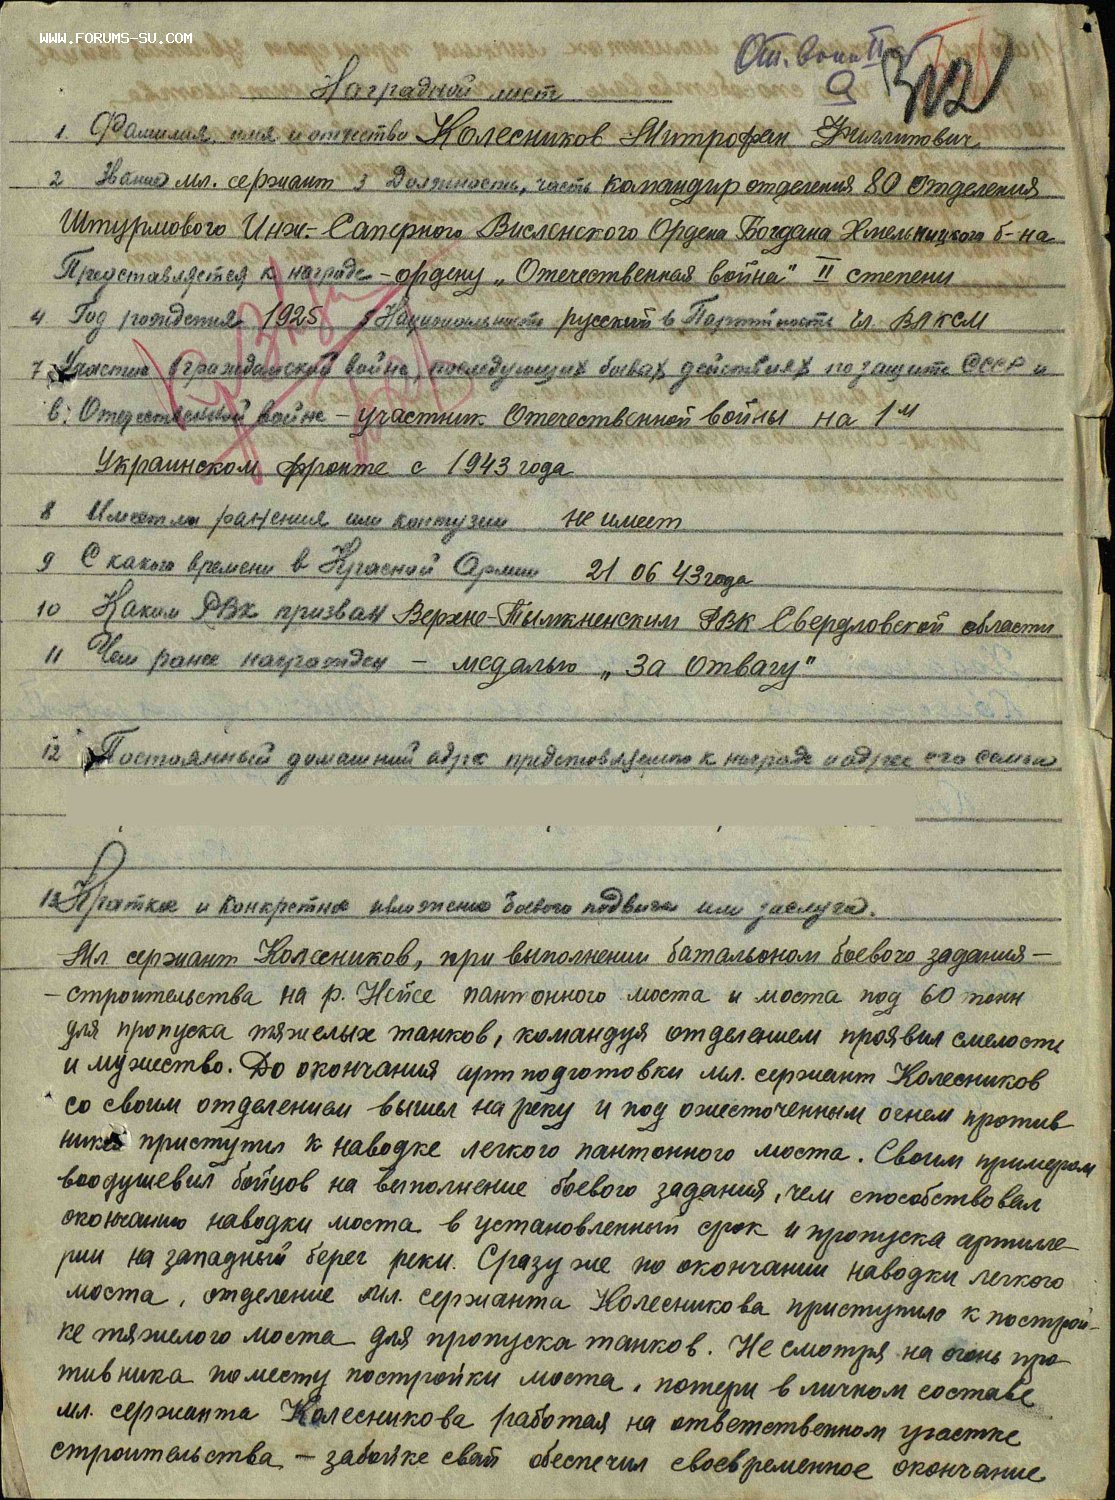 WWW.FORUMS-SU.COM
От. войн II
9
312
Наградной лист
1 Фамилия, имя и отчество Колесников Митрофан Филлипович
2 Звание мл. сержант 3 Должность, часть командир отделения 80 отделения
Штурмового Инж.-Саперного Висленского Ордена Богдана Хмельницкого б-на
Представляется к награде - ордену „Отечественная война" II степени
4 Год рождения 1925 5 Национальность русский 6 Партийность чл. ВЛКСМ
7 Участие в гражданской войне, последующих боевых действиях по защите СССР и
в Отечественной войне - участник Отечественной войны на 1м
Украинском фронте с 1943 года
8 Имеет ли ранения или контузии не имеет
9 С какого времени в Красной Армии 21 06 43 года
10 Каким РВК призван Верхне-Тылжненским РВК Свердловской области
11 Чем ранее награжден - медалью „За Отвагу"
12 Постоянный домашний адрес представляемого к награде и адрес его семьи
13 Краткое и конкретное изложение боевого подвига или заслуга.
Мл сержант Колесников, при выполнении батальоном боевого задания -
- строительства на р. Нейсе пантонного моста и моста под 60 тонн
для пропуска тяжелых танков, командуя отделением проявил смелость
и мужество. До окончания артподготовки мл. сержант Колесников
со своим отделением вышел на реку и под ожесточенным огнем против
ника приступил к наводке легкого пантонного моста. Своим примером
воодушевил бойцов на выполнение боевого задания, чем способствовал
окончанию наводки моста в установленный срок и пропуска артилле-
рии на западный берег реки. Сразу же по окончании наводки легкого
моста, отделение мл. сержанта Колесникова приступило к построй-
ке тяжелого моста для пропуска танков. Не смотря на огонь про-
тивника по месту постройки моста, потери в личном составе
мл. сержанта Колесникова работая на ответственном участке
строительства - забойке свай обеспечил своевременное окончание